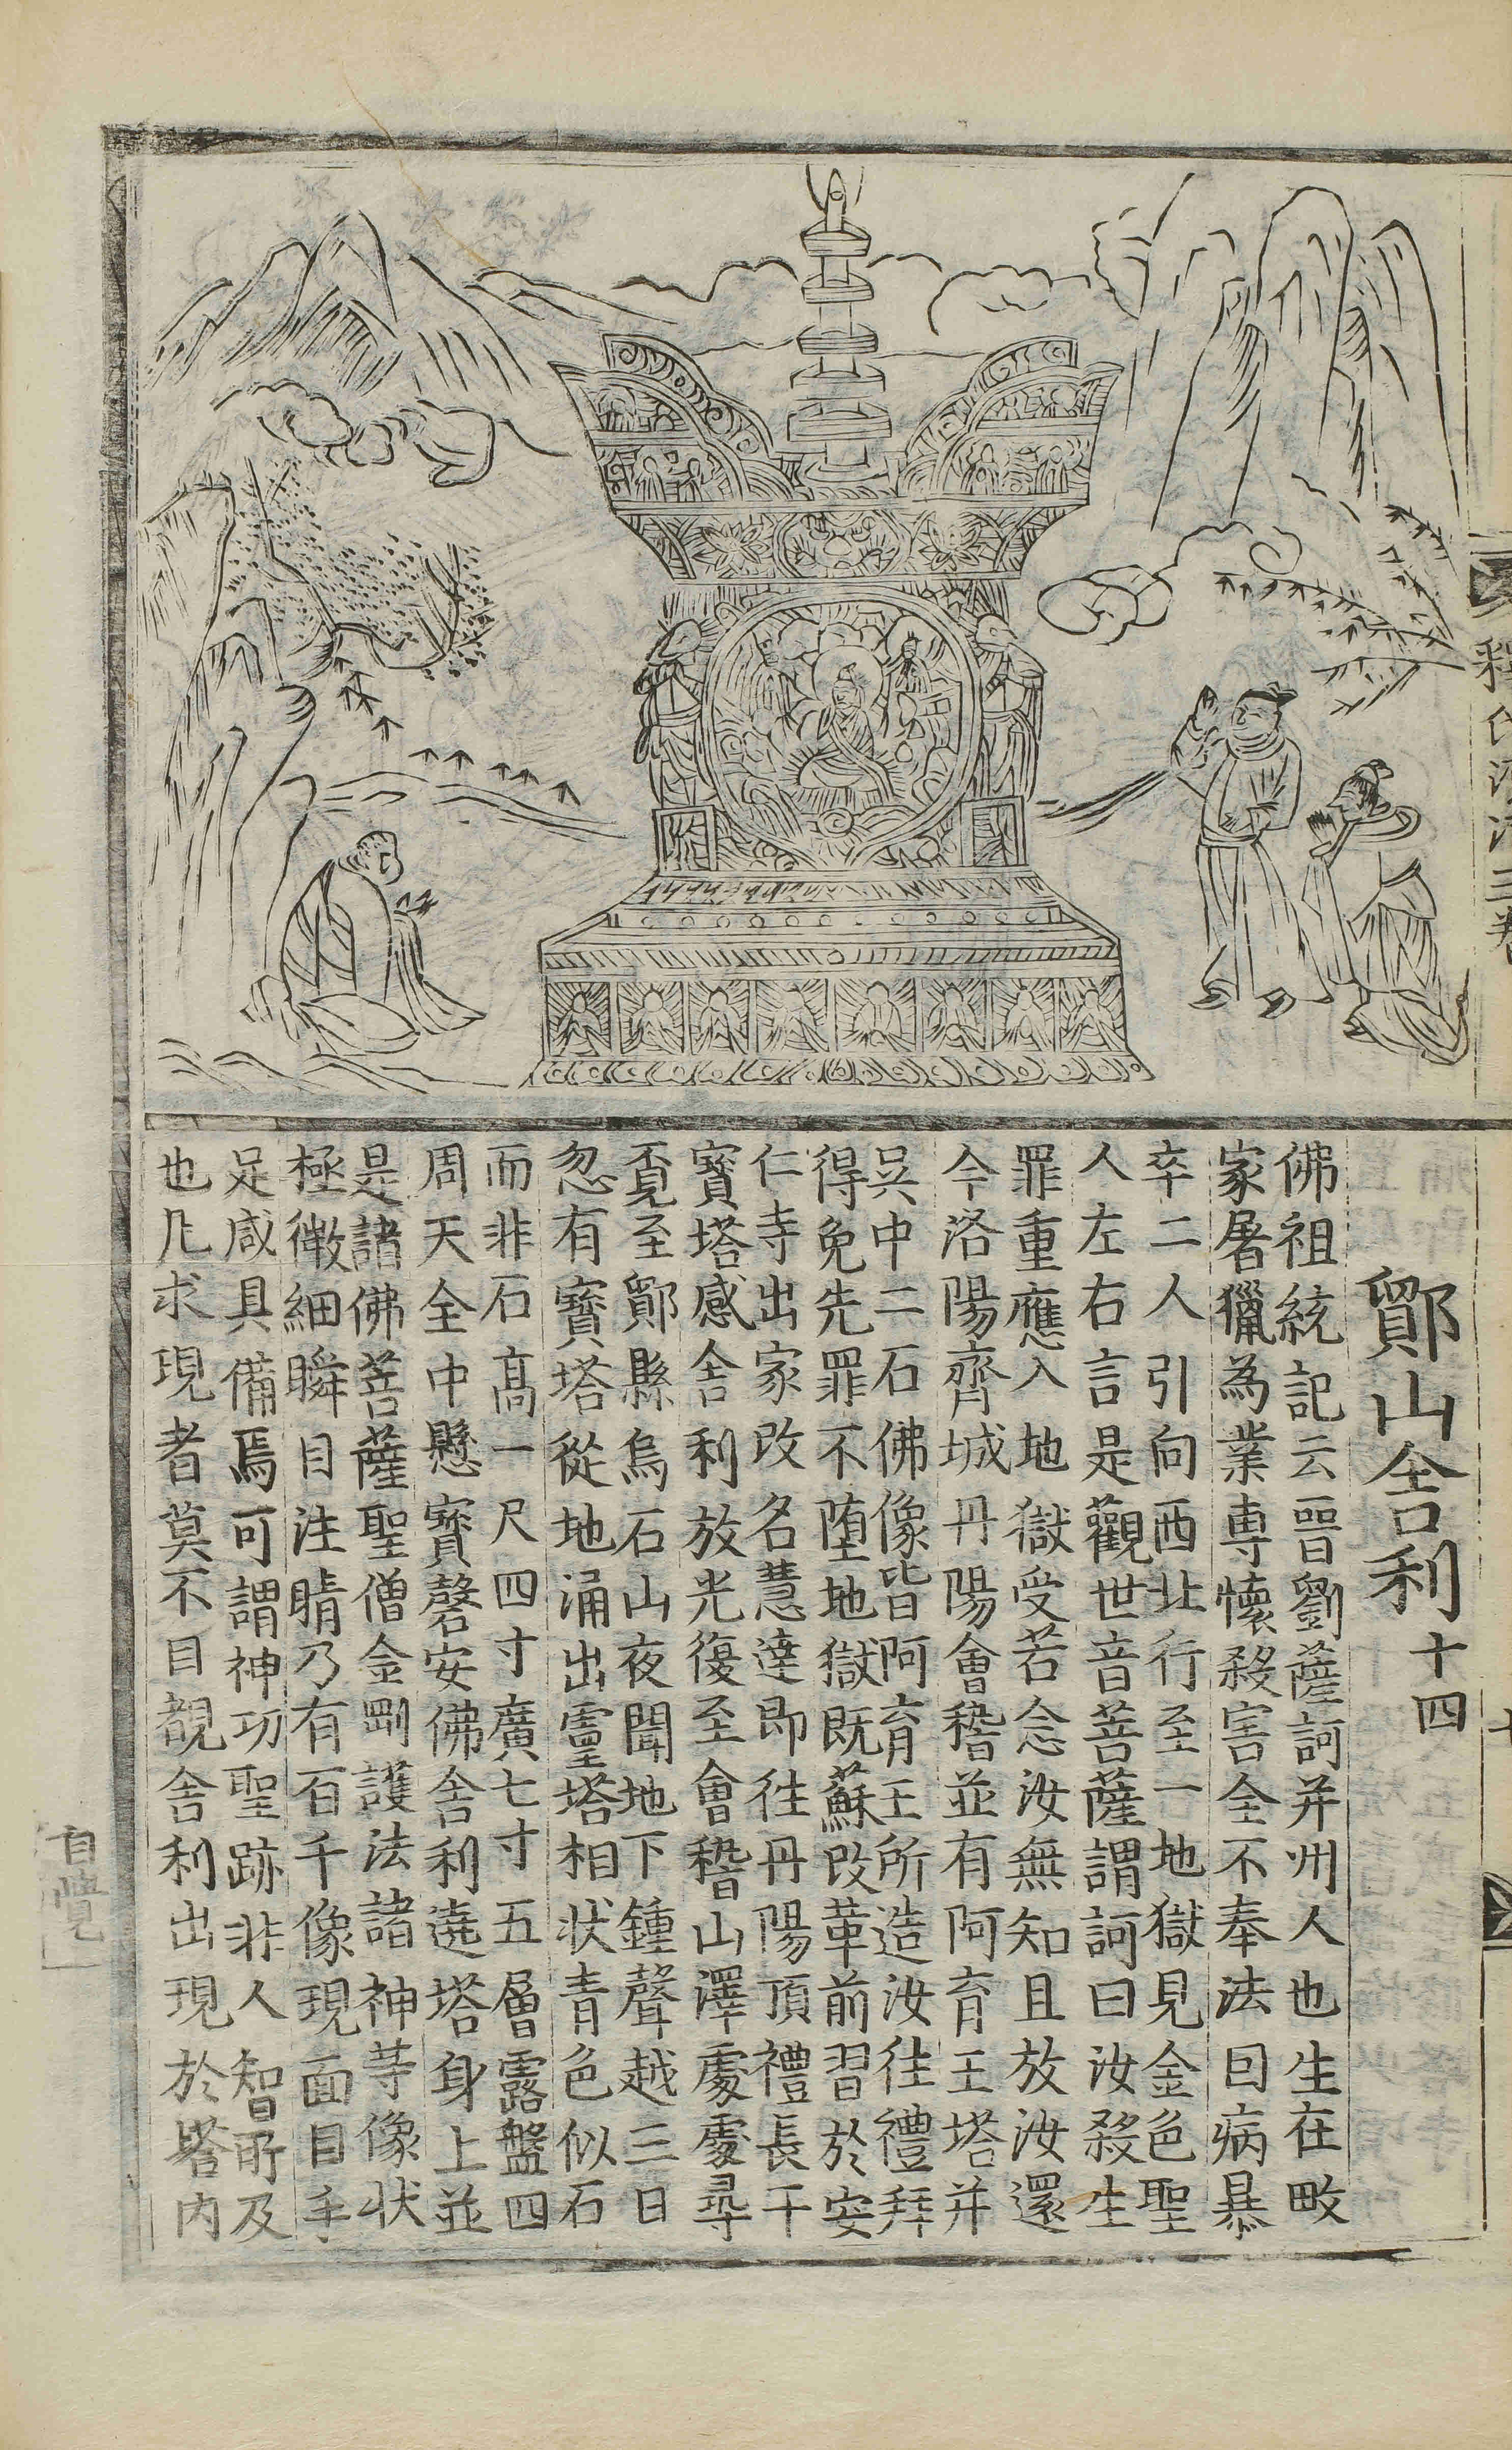 鄮山舍利十四
佛祖統記云晉劉薩訶并州人也生在畋
家屠獵為業專懷殺害全不奉法因病暴
卒二人引向西北行至一地獄見金色聖
人左右言是觀世音菩薩謂訶曰汝殺生
罪重應入地獄受苦念汝無知且放汝還
今洛陽齊城丹陽會稽並有阿育王塔并
吳中二石佛像皆阿育王所造汝往禮拜
得免先罪不墮地獄既蘇改革前習於安
仁寺出家改名慧達即往丹陽頂禮長干
寶塔感舍利放光復至會稽山澤處處尋
覔至鄮縣烏石山夜聞地下鍾聲越三日
忽有寶塔從地涌出靈塔相狀青色似石
而非石高一尺四寸廣七寸五層露盤四
周天全中懸寶磬安佛舍利遶塔身上並
是諸佛菩薩聖僧金剛護法諸神等像狀
極微細瞬目注睛乃有百千像現面目手
足咸具備焉可謂神功聖跡非人智所及
也凡求現者莫不目覩舍利出現於塔內
自覺